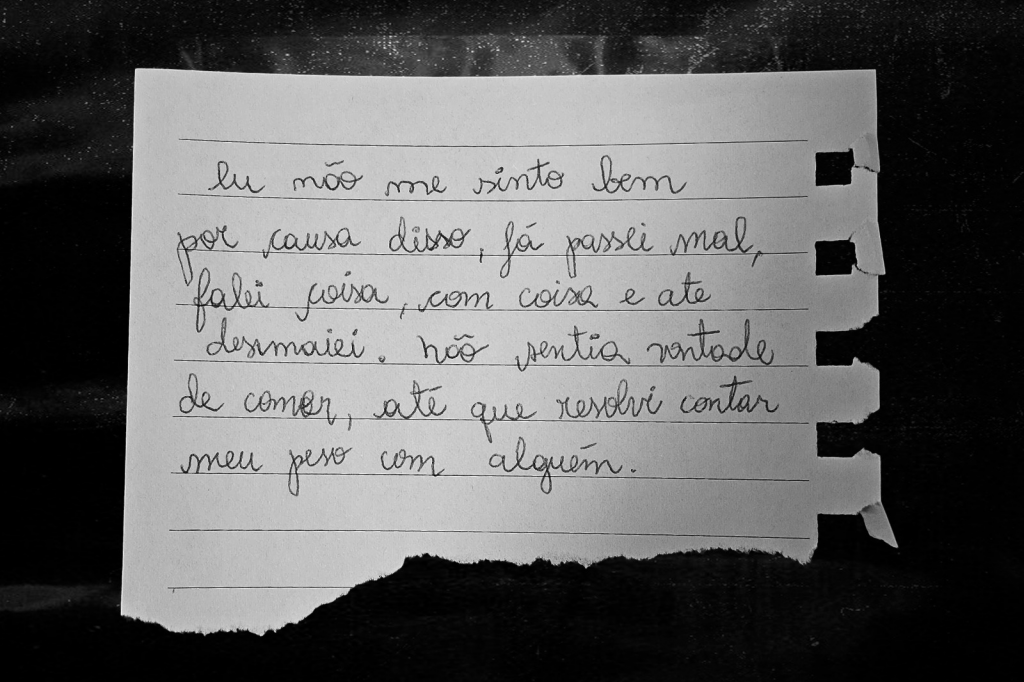 Eu não me sinto bem
por causa disso, já passei mal,
falei coisa, com coisa e ate
desmaiei. Não sentia vontade
de comer, até que resolvi contar
meu peso com alguém.